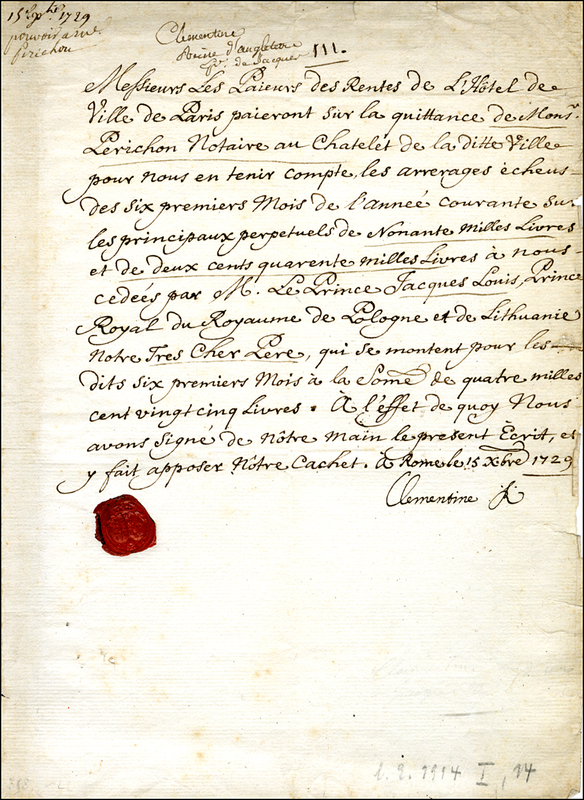 15 xbre 1729
pouvoir a mr.
Perichon
Clementine
Reine d'angleterre
fe. de Jacques III.
Messieurs Les Paieurs des Rentes de L'Hôtel de
Ville de Paris paieront sur la quittance de Monsr.
Perichon Notaire au Chatelet de la ditte Ville
pour nous en tenir compte, les arrerages echeus
des six premiers Mois de l'anneé courante sur
les principaux perpetuels de Nonante milles Livres
et de deux cents quarente milles Livres à nous
cedées par M. Le Prince Jacques Louis, Prince
Royal du Royaume de Pologne et de Lithuanie
Notre Tres Cher Pere, qui se montent pour les
dits six premiers Mois à la Some de quatre milles
cent vingt cinq Livres. À l'éffet de quoy Nous
avons signé de nôtre main le present Ècrit, et
y fait apposer Nôtre Cachet. à Rome le 15 Xbre 1729
Clementine R
1. 2. 1914 I, 14